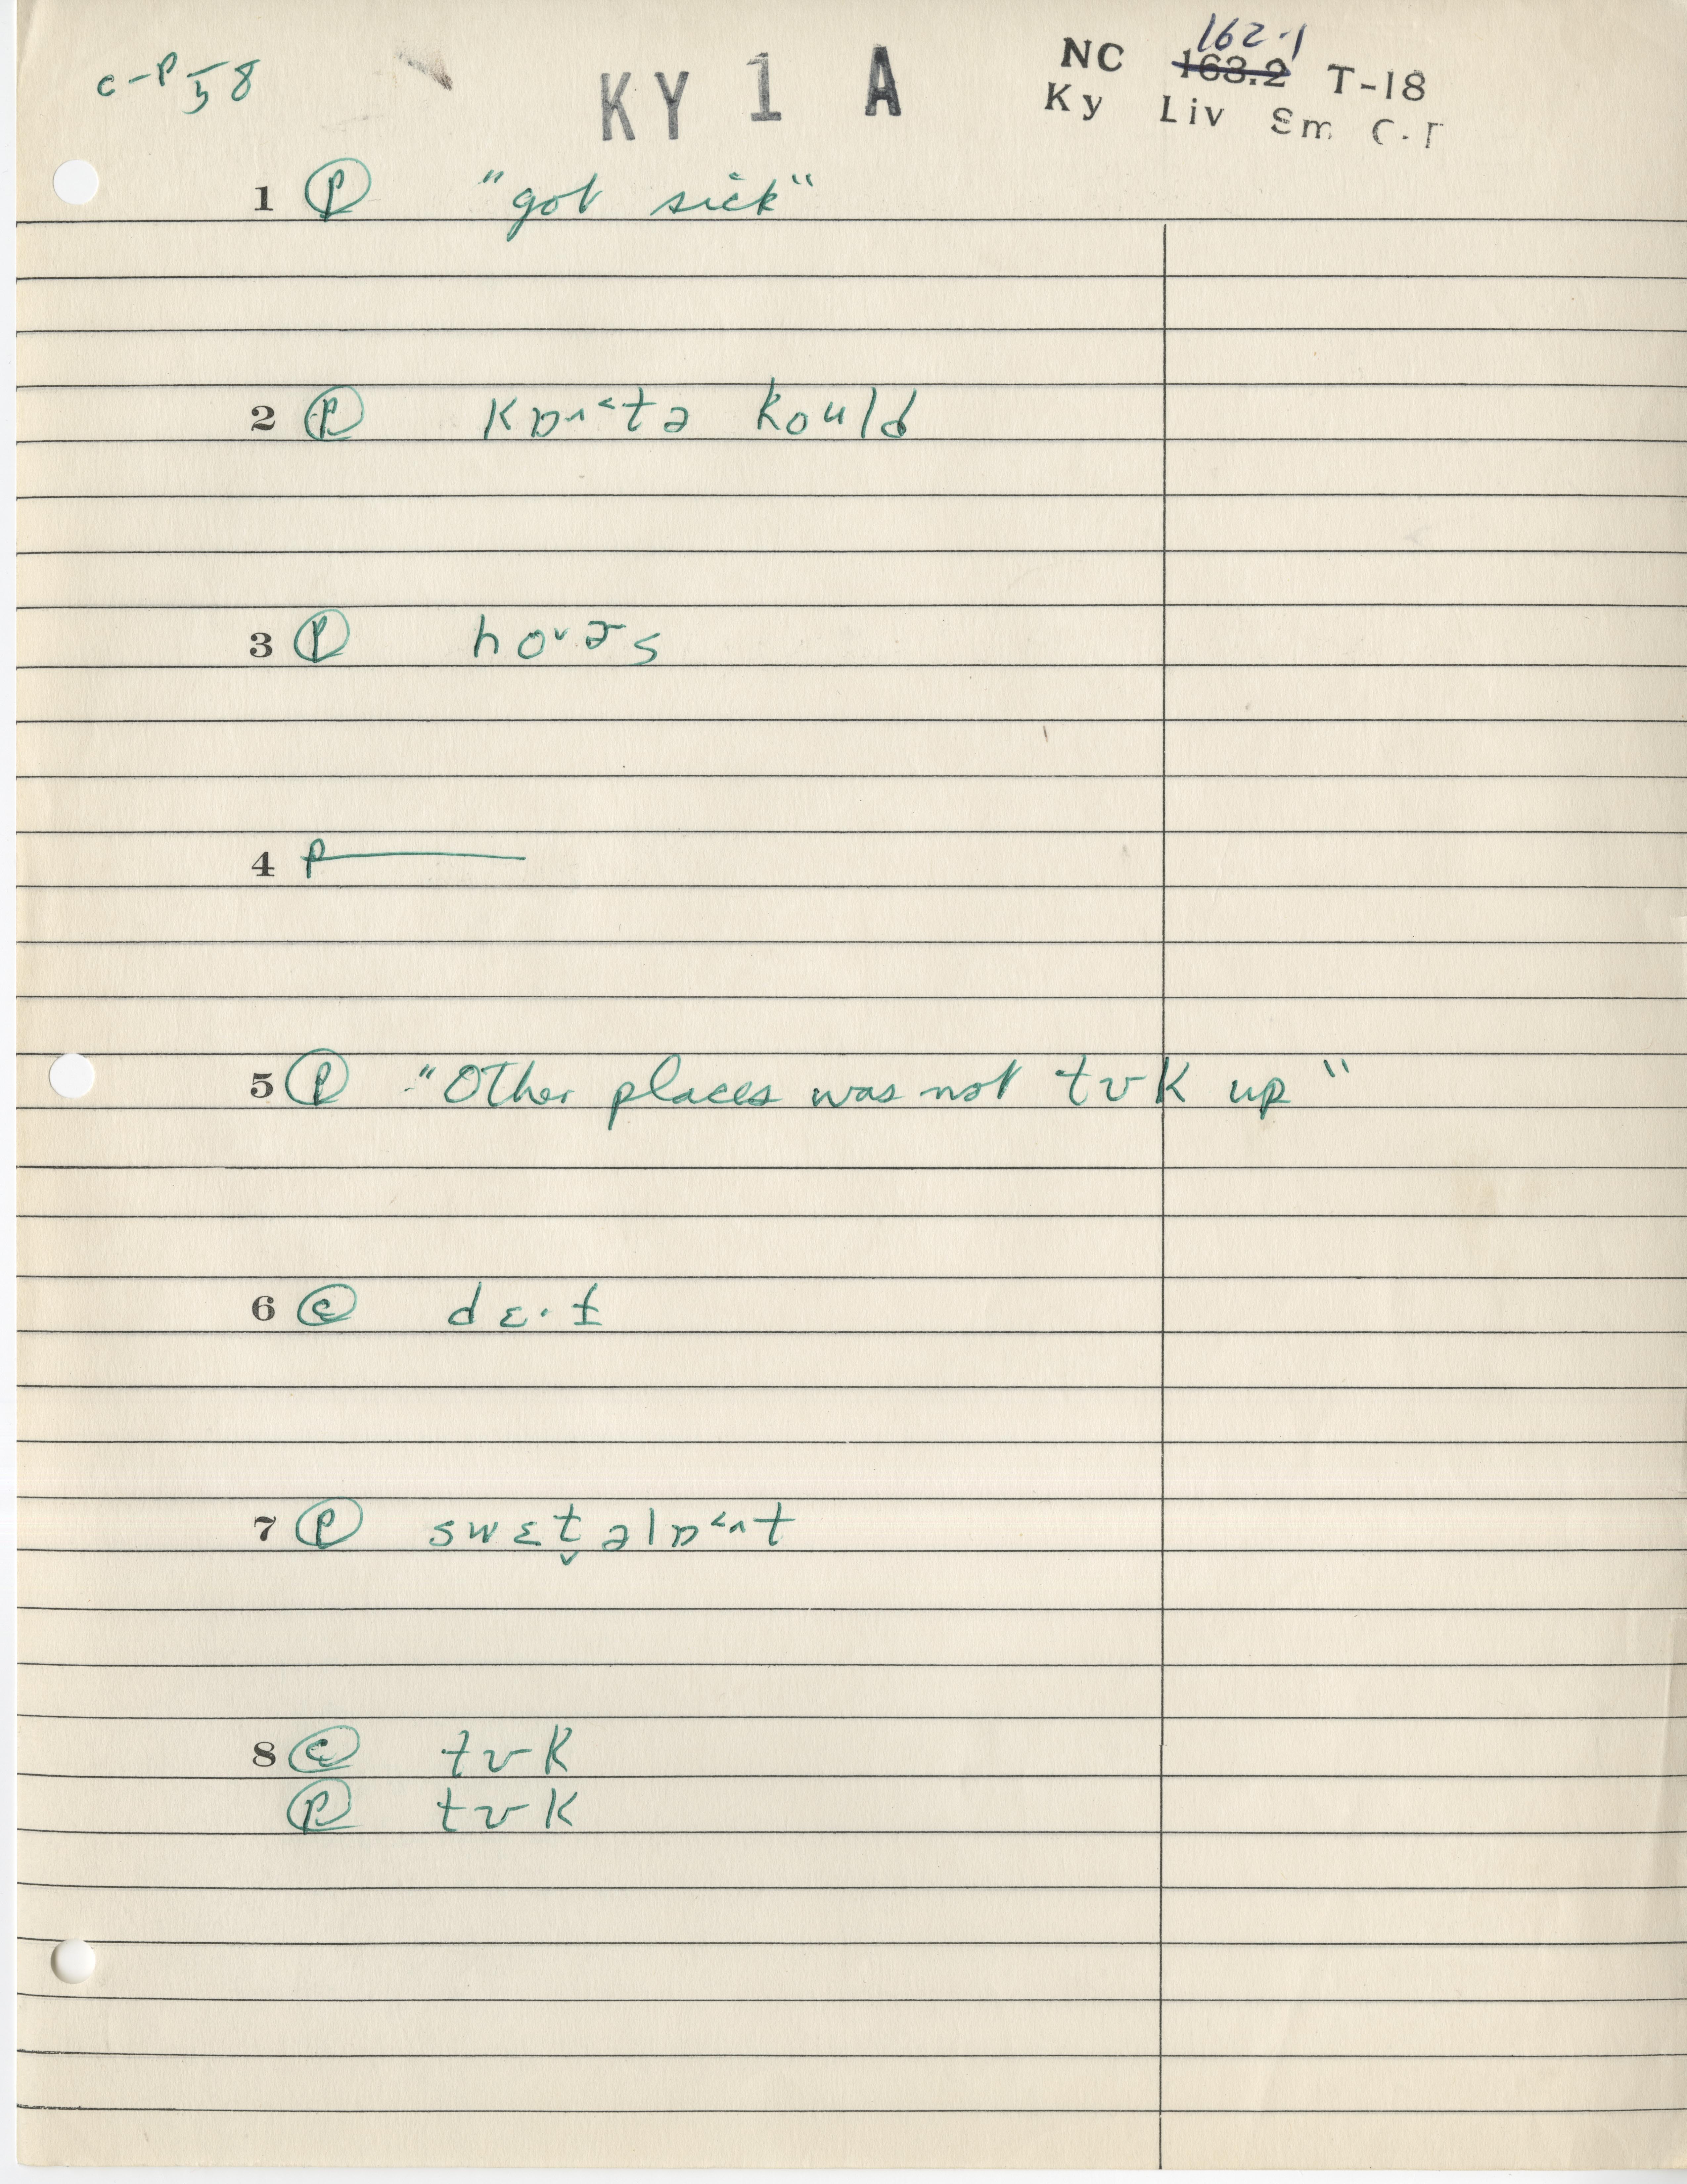 c-P 58 KY 1 A NC 163.2 162.1 T-18
Ky Liv Sm C-T
1 Ⓟ "got sick"
2 Ⓟ kɒ˄˂tə kould
3 Ⓟ ho˅ɚs
4 P———
5 Ⓟ "Other places was not tʊk up"
6 ⓒ dɛ·f
7 Ⓟ swɛt̬əlɒ˂˄t
8 ⓒ tʊk
Ⓟ tʊk